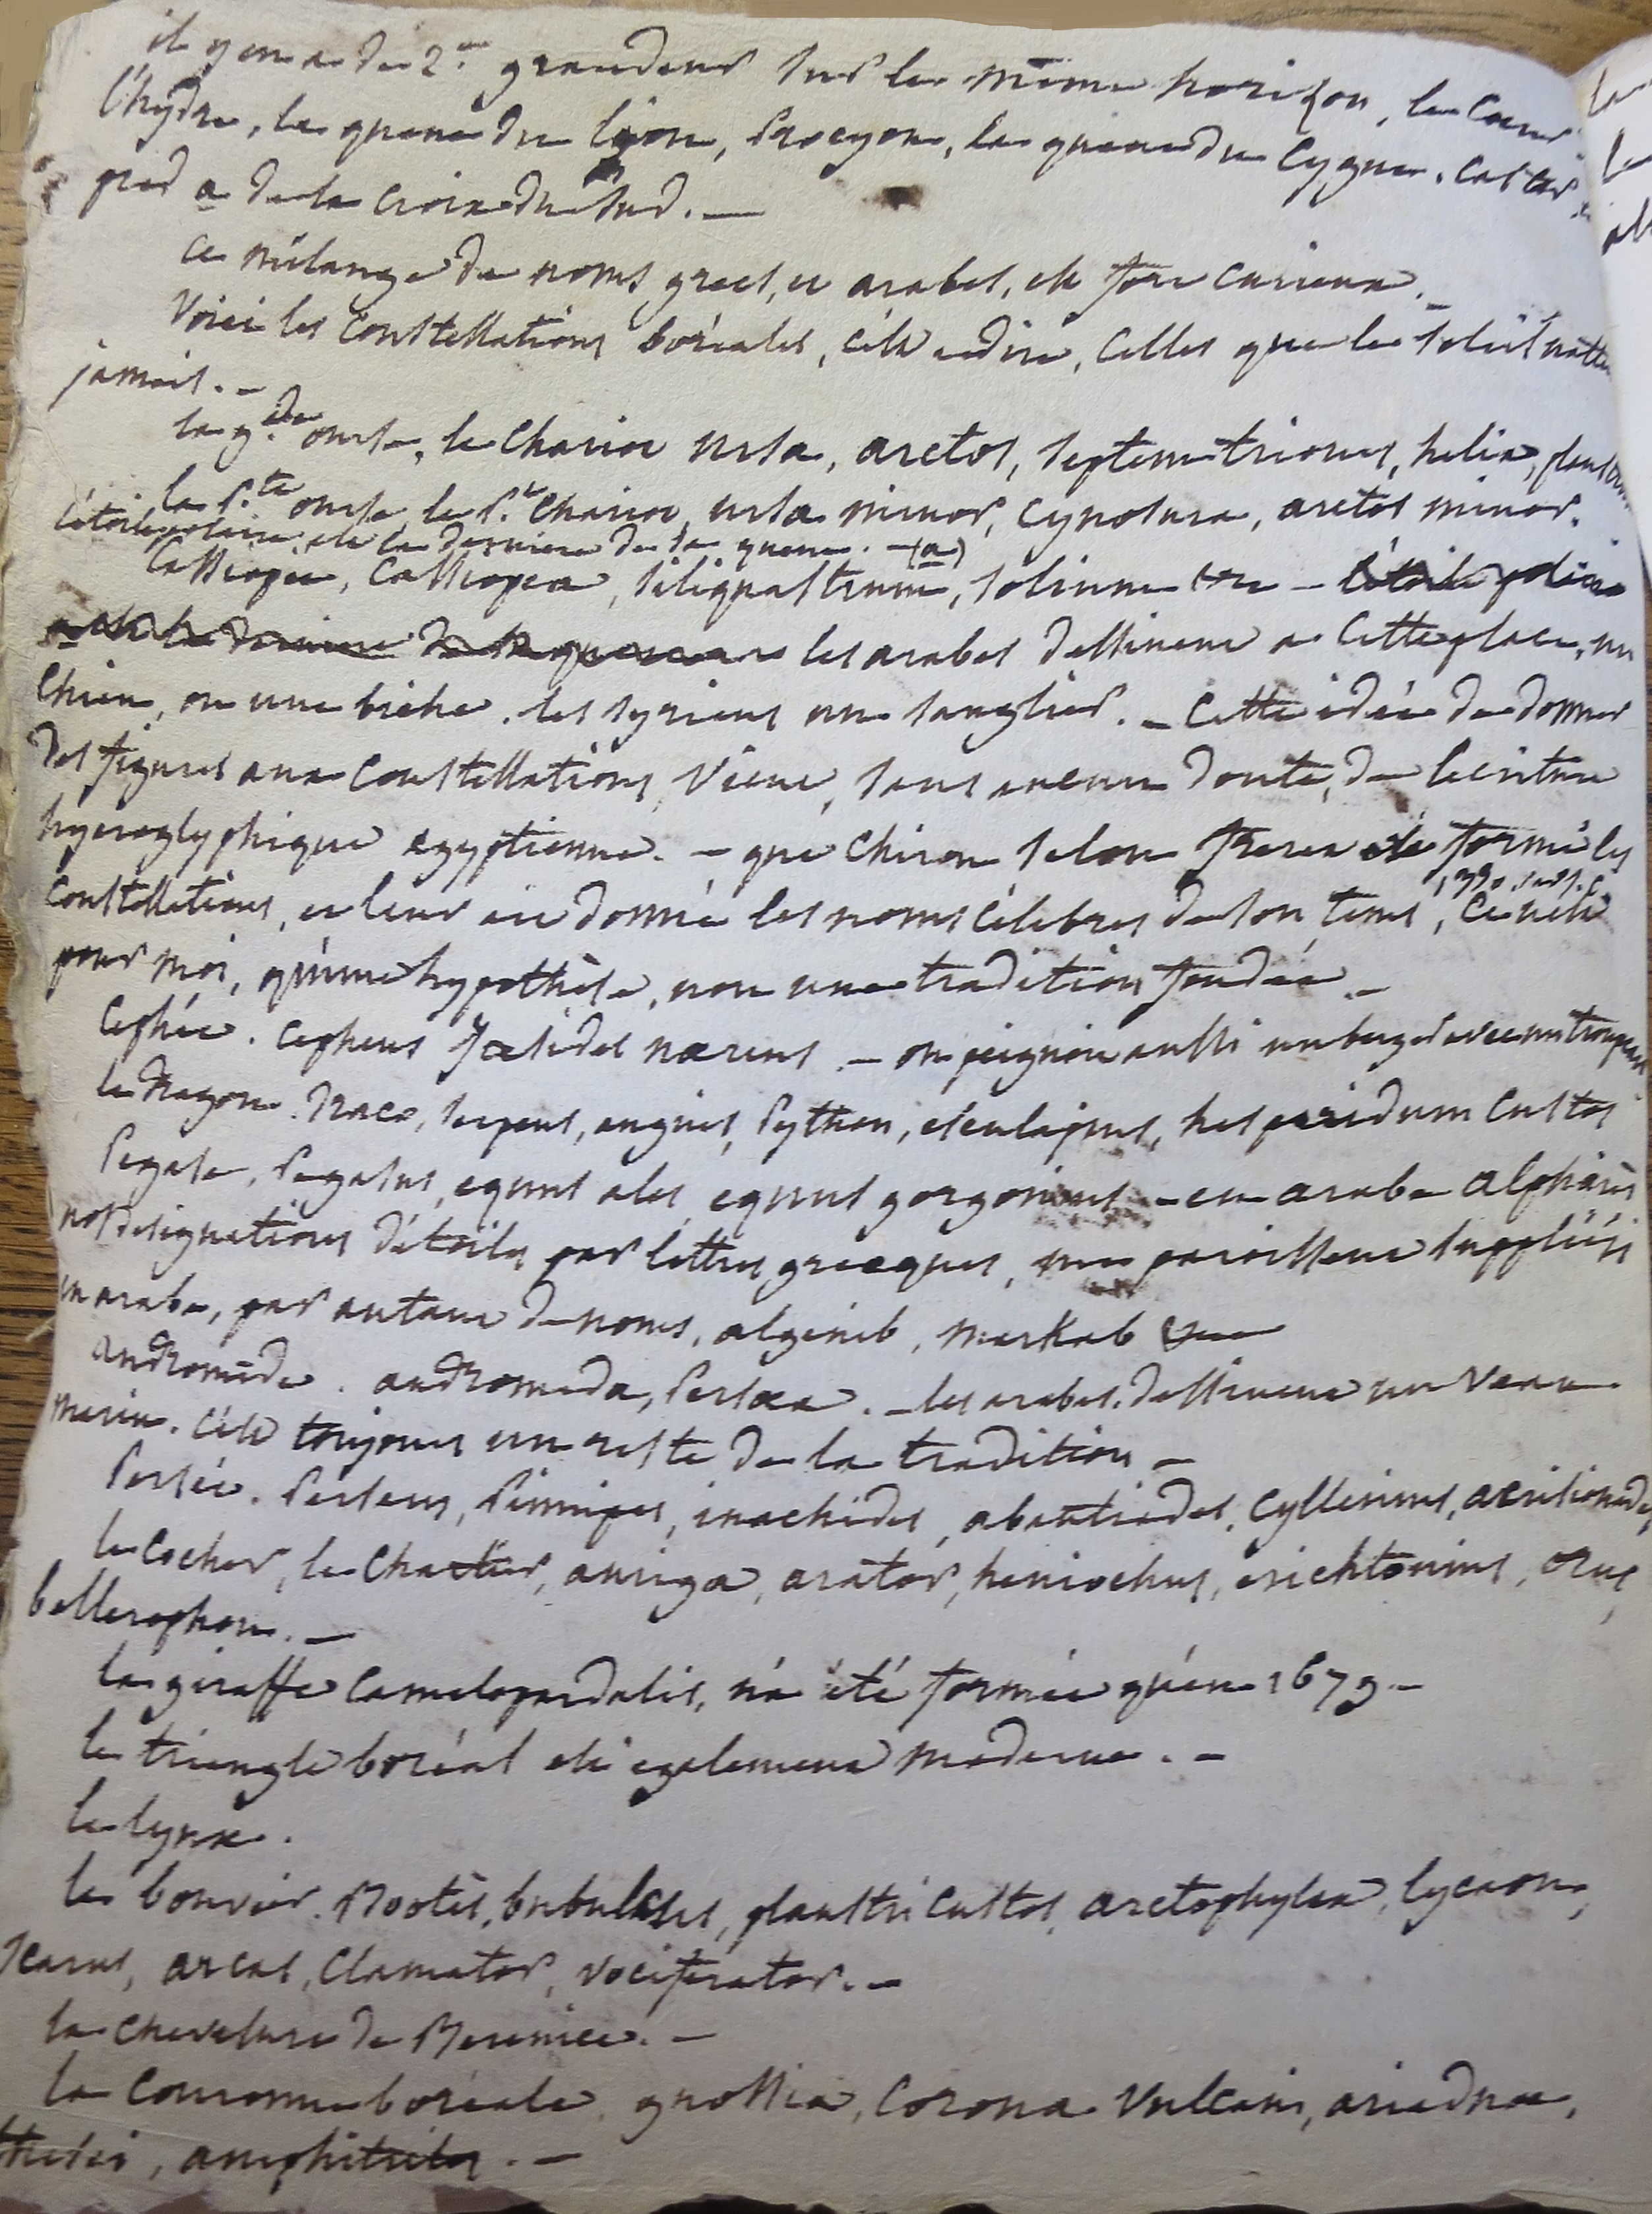 il y en a de 2.e grandeur sur le même horizon, le Cœur
l'hydre, la queue du lyon, Procyon, la queue du Cygne, Castor,
pied a de la croix du sud. —
ce mélange de noms grecs, et arabes, est fort curieux. _
Voici les constellations boréales, c'est adire, Celles que le soleil n'atte
jamais. —
la g.de ourse, le Chariot ursa, arctos, septemtriones, helix, plaust
la P.te ourse, le P.t Chariot, ursa minor, Cynosura, arctos minor.
l'étoile polaire est la derniere de sa queue. — (a)
Cassiopée, Cassiopea, siliquastrum, solium &c — l'étoile polaire
a est la derniere de sa queue les arabes dessinent a Cette place, un
Chien, ou une biche. les syriens un sanglier. — Cette idée de donner
des figures aux Constellations, Vient, sans aucun doute, de lecriture
hyeroglyphique egyptienne. — que Chiron selon Freret ait formé les
1390 av. J. C.
Constellations, et leur ait donné les noms Célebres de son tems, Ce n'est
pour moi, qu'une hypothèse, non une tradition fondée. —
Cephée. Cepheus Jasides nereus. — on peignoit aussi un berger avec un troupeau
le Dragon. Draco, serpens, anguis, Python, esculapius, hesperidum Custos
Pegase, Pegasus, equus ales, equus gorgonius — en arabe alpharès
nos designations d'étoiles par lettres grecques, me paroissent suppléées
en arabe, par autant de noms, algenib, markab &c
andromède. andromeda, Persea. — les arabes dessinent un Veau
marin. C'est toujours un reste de la tradition —
Persée. Perseus, Pinnipes, inachides, abantiades, Cyllenius, acrisioniades,
le Cocher, le Chartier, auriga, arator, heniochus, erichtonius, orus,
bellerophon. —
la giraffe Camelopardalis, n'a été formée qu'en 1679 —
le triangle boréal est egalement moderne. —
le lynx.
le bouvier. Bootès, bubulcus, plaustri Custos, arctophylax, lycaon,
Icarus, arcas, Clamator, vociferator. —
la chevelure de Berenice. —
la Couronne boréale, gnossia, Corona Vulcani, ariadnæ,
thesei, amphitrites. —